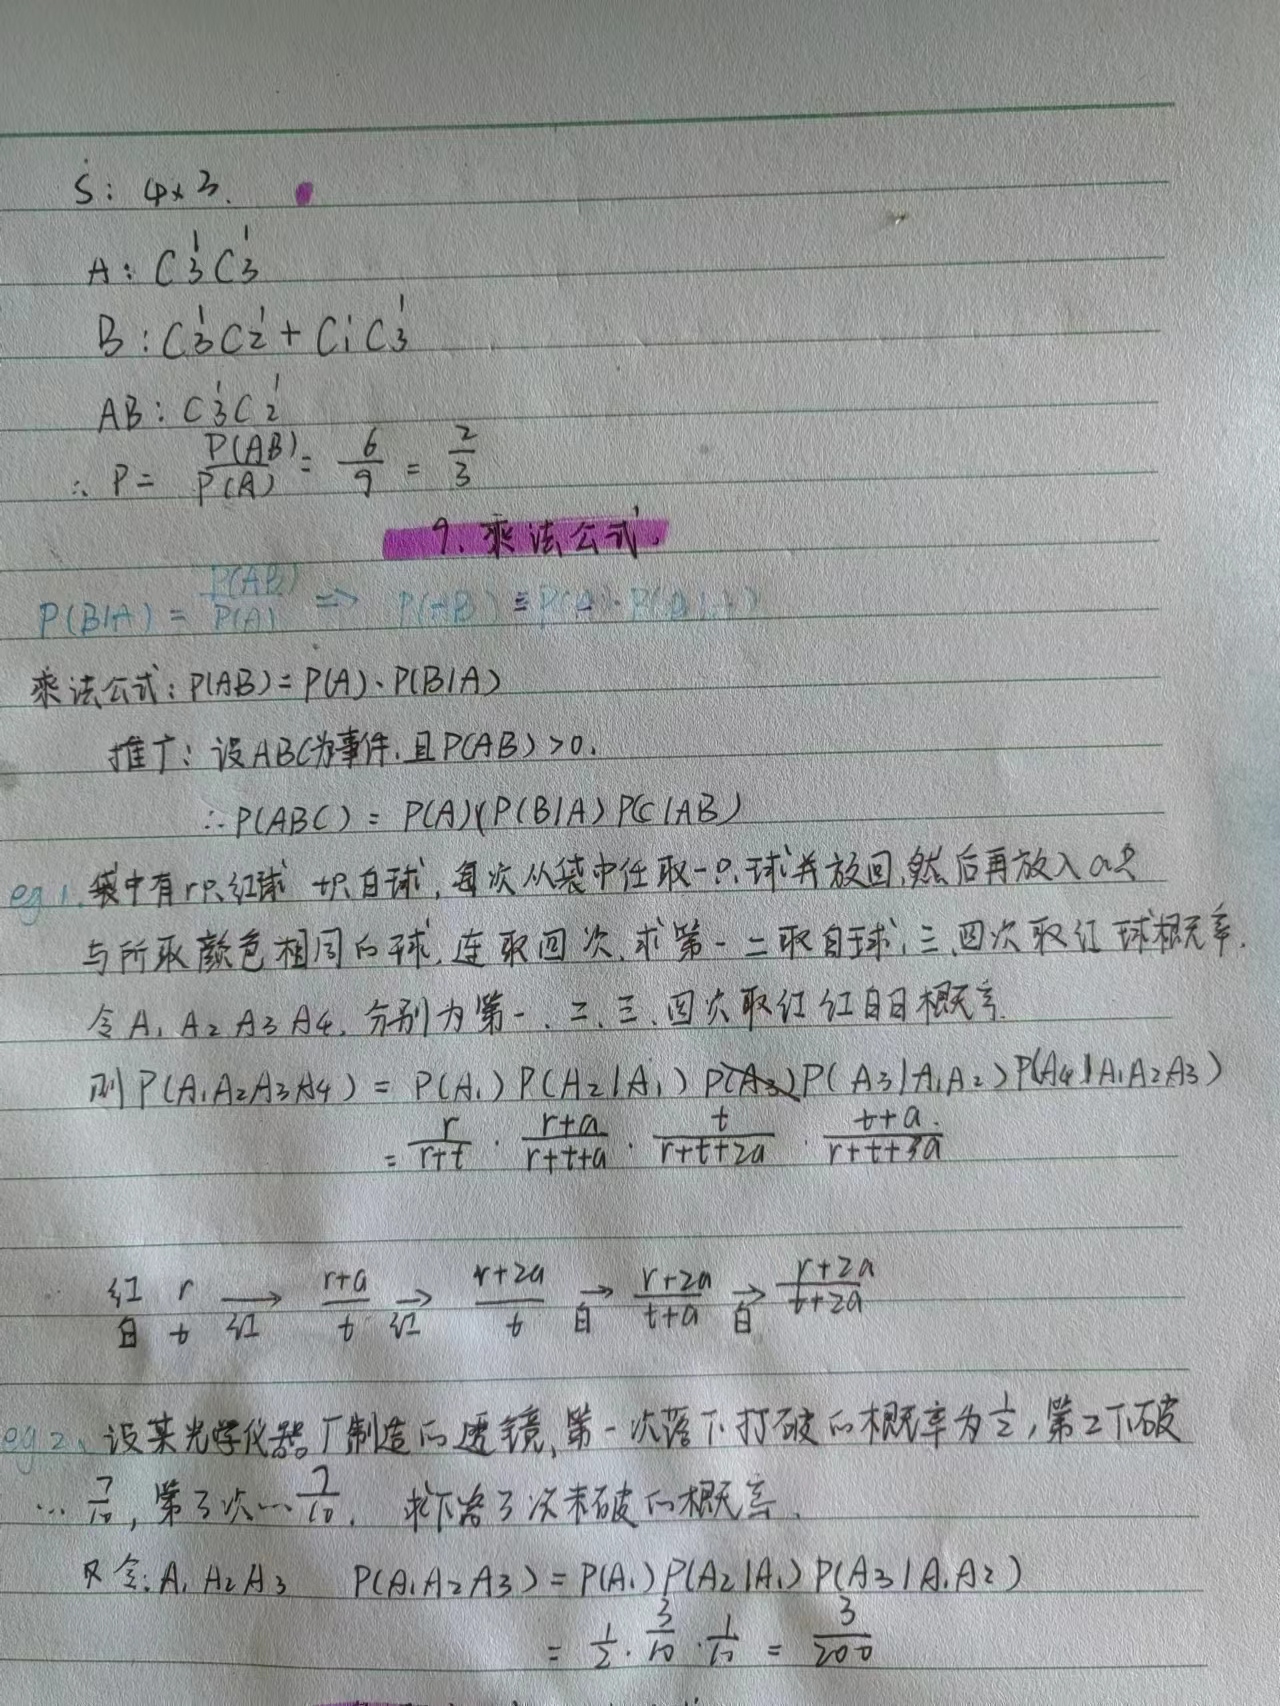 S: 4×3.
A: C₃¹C₃¹
B: C₃¹C₂¹ + C₁¹C₃¹
AB: C₃¹C₂¹
∴ P = P(AB)/P(A) = 6/9 = 2/3
9. 乘法公式.
P(B|A) = P(AB)/P(A) => P(AB) = P(A)·P(B|A)
乘法公式: P(AB) = P(A)·P(B|A)
推广: 设ABC为事件, 且P(AB)>0.
∴ P(ABC) = P(A)(P(B|A) P(C|AB)
eg 1. 袋中有r只红球 t只白球, 每次从袋中任取一只球并放回, 然后再放入a只
与所取颜色相同的球, 连取四次, 求第一二取白球, 三、四次取红球概率.
令A₁ A₂ A₃ A₄, 分别为第一、二、三、四次取红红白白概率.
则P(A₁A₂A₃A₄) = P(A₁) P(A₂|A₁) P(A₃) P(A₃|A₁A₂) P(A₄|A₁A₂A₃)
= r/(r+t) · (r+a)/(r+t+a) · t/(r+t+2a) · (t+a)/(r+t+3a)
红 r → r+a → r+2a → r+2a → r+2a
白 t 红 t 红 t 白 t+a 白 t+2a
eg 2. 设某光学仪器厂制造的透镜, 第一次落下打破的概率为1/2, 第2下破
… 7/10, 第3次…7/10. 求下落3次未破的概率.
令: A₁ A₂ A₃ P(A₁A₂A₃) = P(A₁) P(A₂|A₁) P(A₃|A₁A₂)
= 1/2 · 3/10 · 1/10 = 3/200